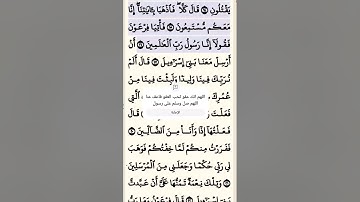 يَقْتُلُونِ ١٤ قَالَ كَلَّا ۖ فَٱذْهَبَا بِـَٔايَـٰتِنَآ ۖ إِنَّا
مَعَكُم مُّسْتَمِعُونَ ١٥ فَأْتِيَا فِرْعَوْنَ
فَقُولَآ إِنَّا رَسُولُ رَبِّ ٱلْعَـٰلَمِينَ ١٦ أَنْ
أَرْسِلْ مَعَنَا بَنِىٓ إِسْرَٰٓءِيلَ ١٧ قَالَ أَلَمْ
نُرَبِّكَ فِينَا وَلِيدًا وَلَبِثْتَ فِينَا مِنْ
عُمُرِكَ
اللهم انك عفو تحب العفو فاعف عنا
ٱلَّتِى
اللهم صل وسلم على رسول
فَعَلْتَ
فَعَلْتُهَآ إِذًا وَأَنَا۠ مِنَ ٱلضَّآلِّينَ ٢٠
فَفَرَرْتُ مِنكُمْ لَمَّا خِفْتُكُمْ فَوَهَبَ
لِى رَبِّى حُكْمًا وَجَعَلَنِى مِنَ ٱلْمُرْسَلِينَ
٢١ وَتِلْكَ نِعْمَةٌ تَمُنُّهَا عَلَىَّ أَنْ عَبَّدتَّ